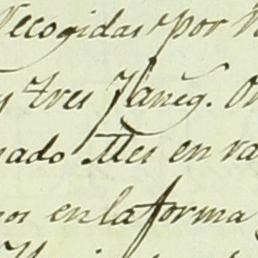 Recogidas por
y tres faneg.
ado Mes en
os en la forma